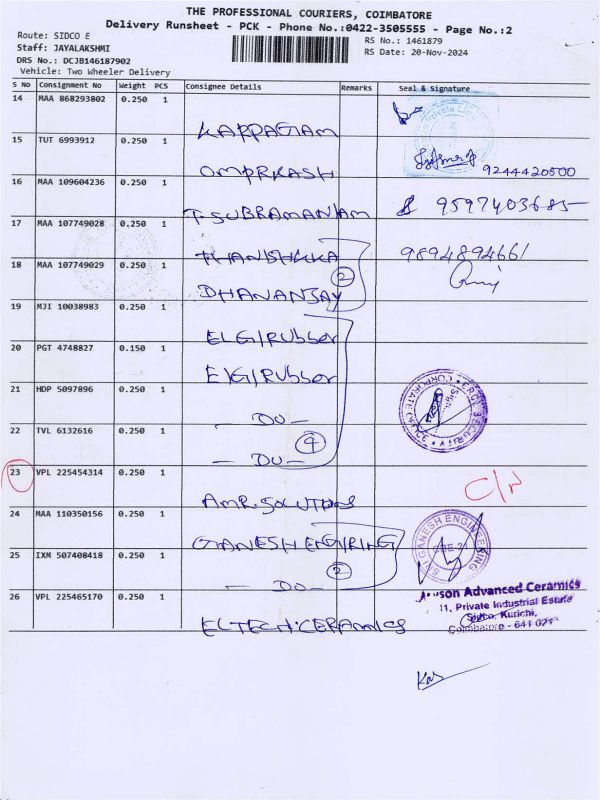 THE PROFESSIONAL COURIERS, COIMBATORE
Delivery Runsheet - PCK - Phone No.:0422-3505555 - Page No.:2
Route: SIDCO E
RS No.: 1461879
Staff: JAYALAKSHMI
RS Date: 20-Nov-2024
DRS No.: DCJB146187902
Vehicle: Two Wheeler Delivery
S No Consignment No Weight PCS Consignee Details Remarks Seal & Signature
14 MAA 868293802 0.250 1
KARPAGAM
Private Limi
15 TUT 6993912 0.250 1
OMPRKASH
9244420500
16 MAA 109604236 0.250 1
T.SUBRAMANIAM
9597403685
17 MAA 107749028 0.250 1
THANISHKKA
9894894661
18 MAA 107749029 0.250 1
DHANANJAY
2
19 MJI 10038983 0.250 1
ELGI Rubber
20 PGT 4748827 0.150 1
ElGI Rubber
21 HDP 5097896 0.250 1
— DO —
22 TVL 6132616 0.250 1
— DO —
4
23 VPL 225454314 0.250 1
C/N
AMR.SOLUTIONS
24 MAA 110350156 0.250 1
GANESH ENGIRING
GANESH ENGINEERING
25 IXM 507408418 0.250 1
— DO —
2
26 VPL 225465170 0.250 1
ELTECH.CERAMICS
son Advanced Ceramics
11, Private Industrial Estate
Sidco, Kurichi,
Coimbatore - 641 021